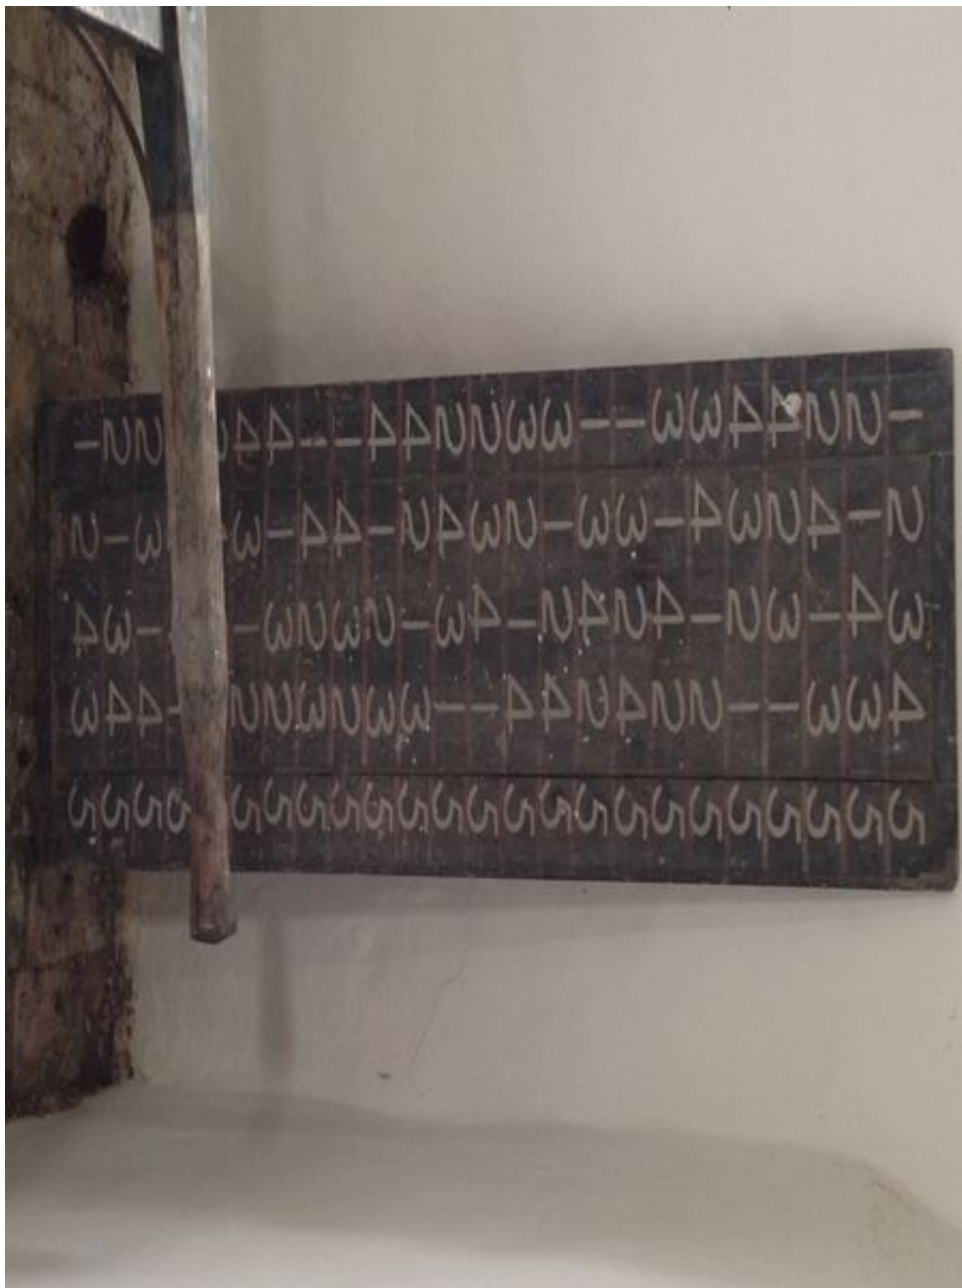 12345
21435
24135
42315
43215
34125
31425
13245
13425
31245
32145
23415
24315
42135
41235
14325
14235
41325
43125
23145
21345
12435